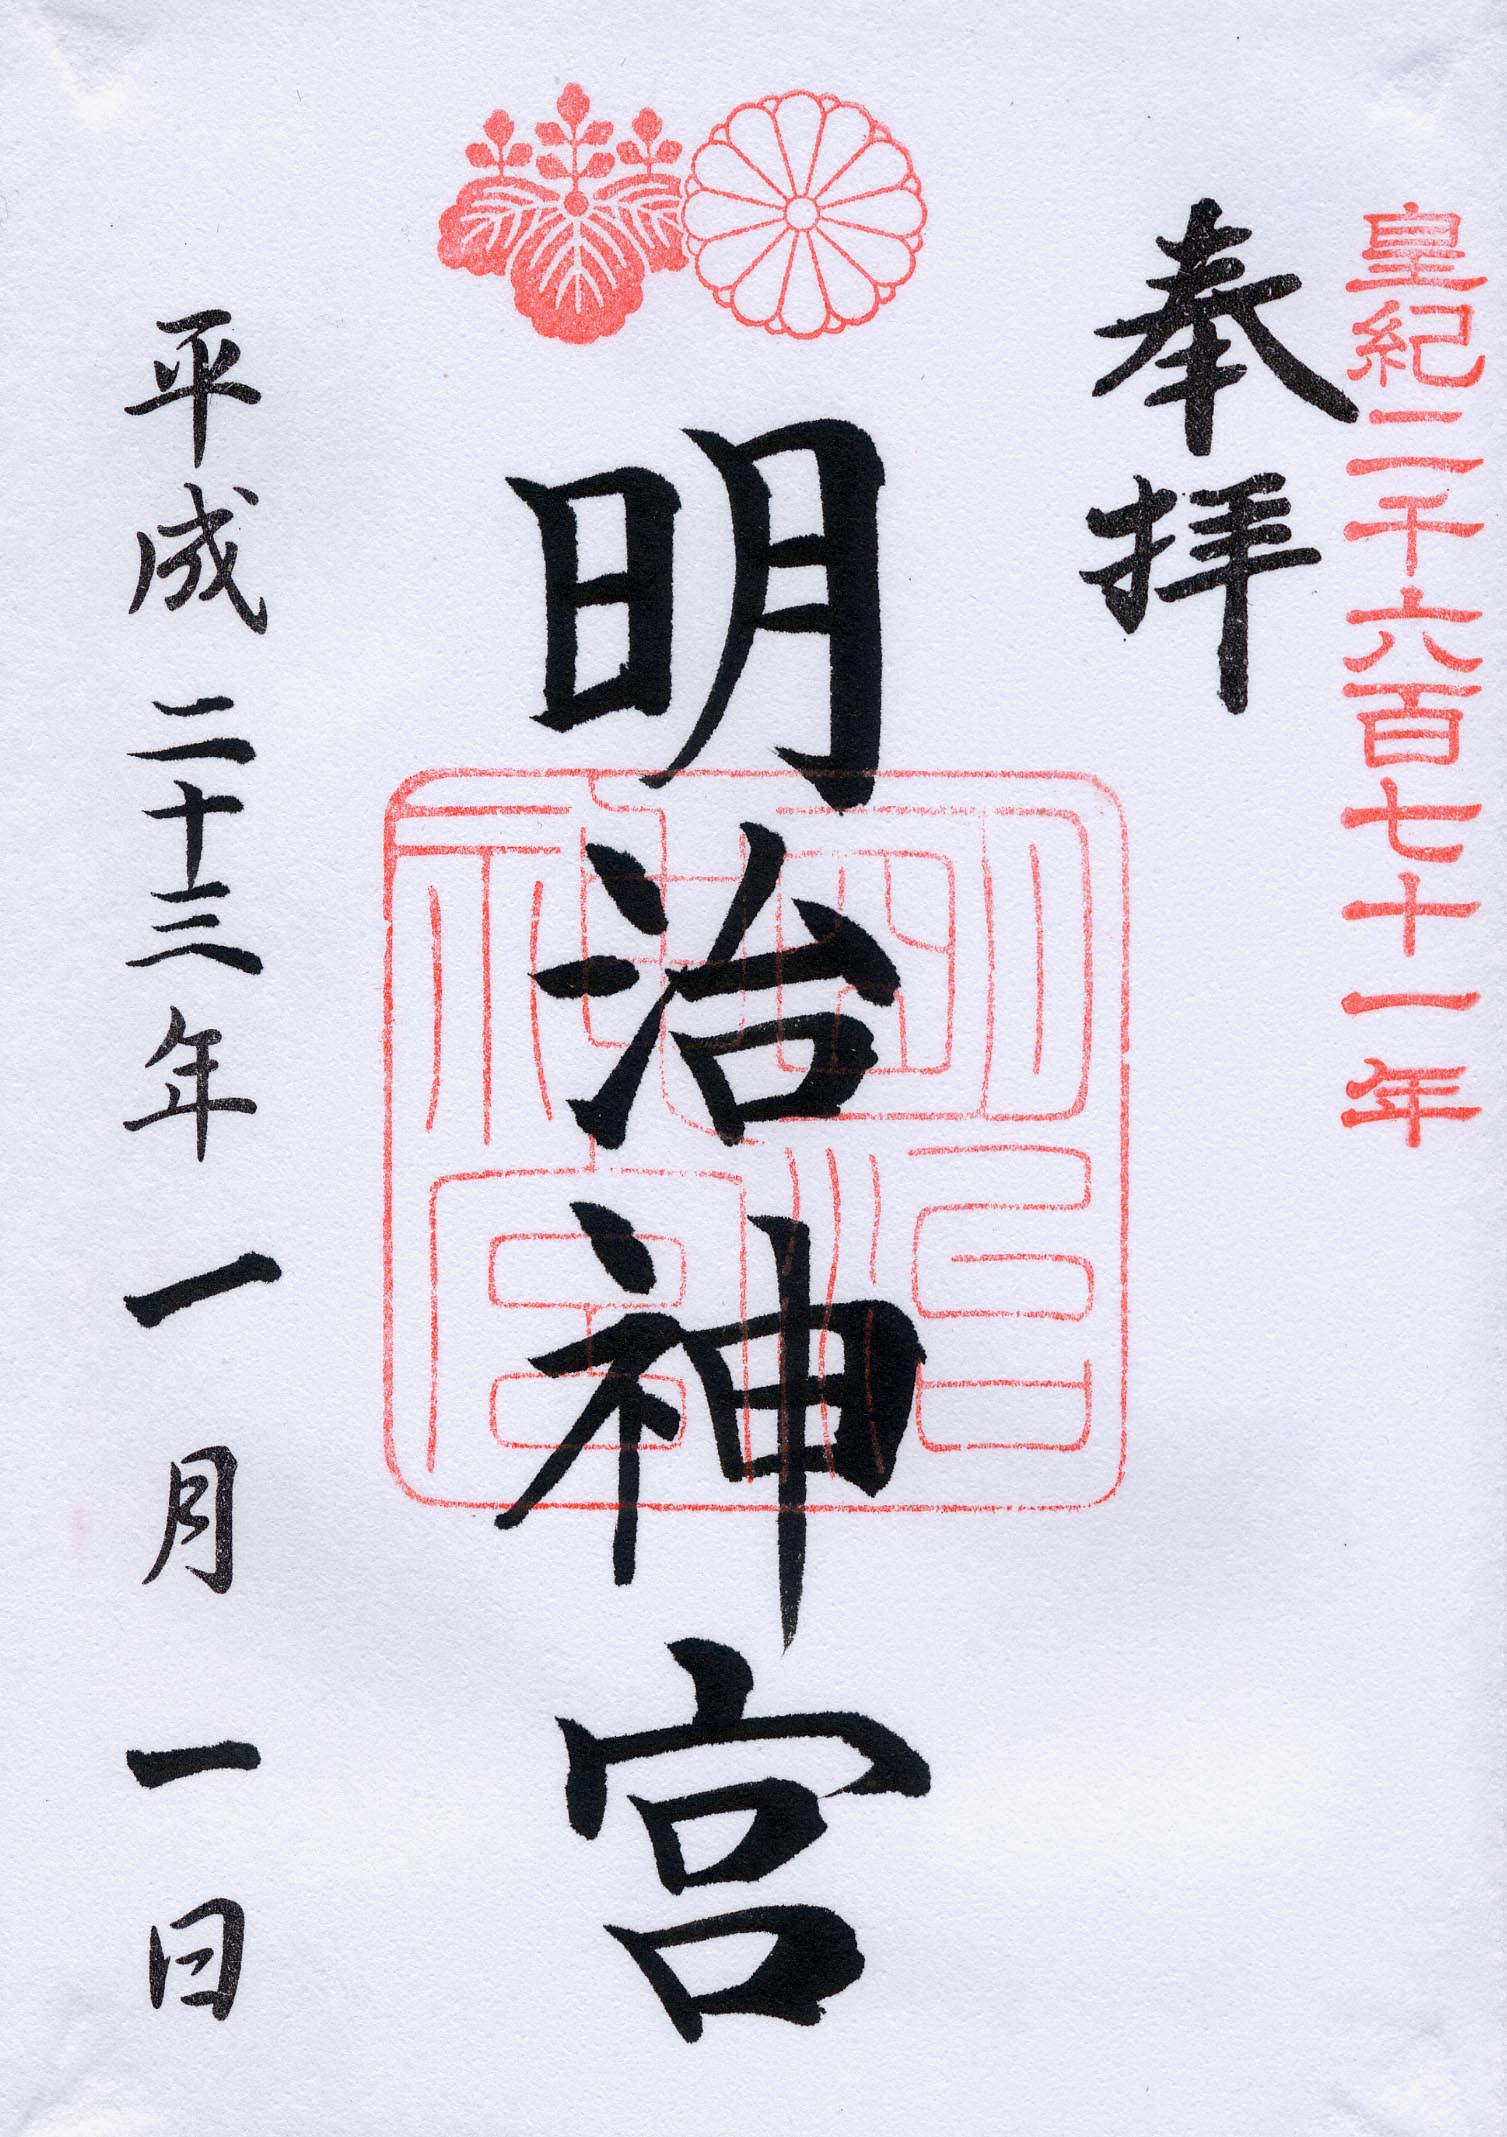 皇紀二千六百七十一年
奉拝
明治神宮
明治神宮
平成二十三年一月一日